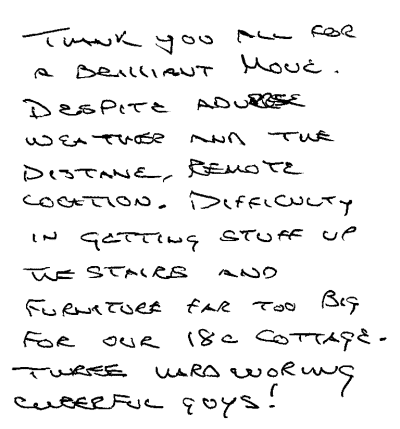 THANK YOU ALL FOR
A BRILLIANT MOVE.
DESPITE ADVERSE
WEATHER AND THE
DISTANCE, REMOTE
LOCATION. DIFFICULTY
IN GETTING STUFF UP
THE STAIRS AND
FURNITURE FAR TOO BIG
FOR OUR 18C COTTAGE.
THREE HARD WORKING
CHEERFUL GUYS!